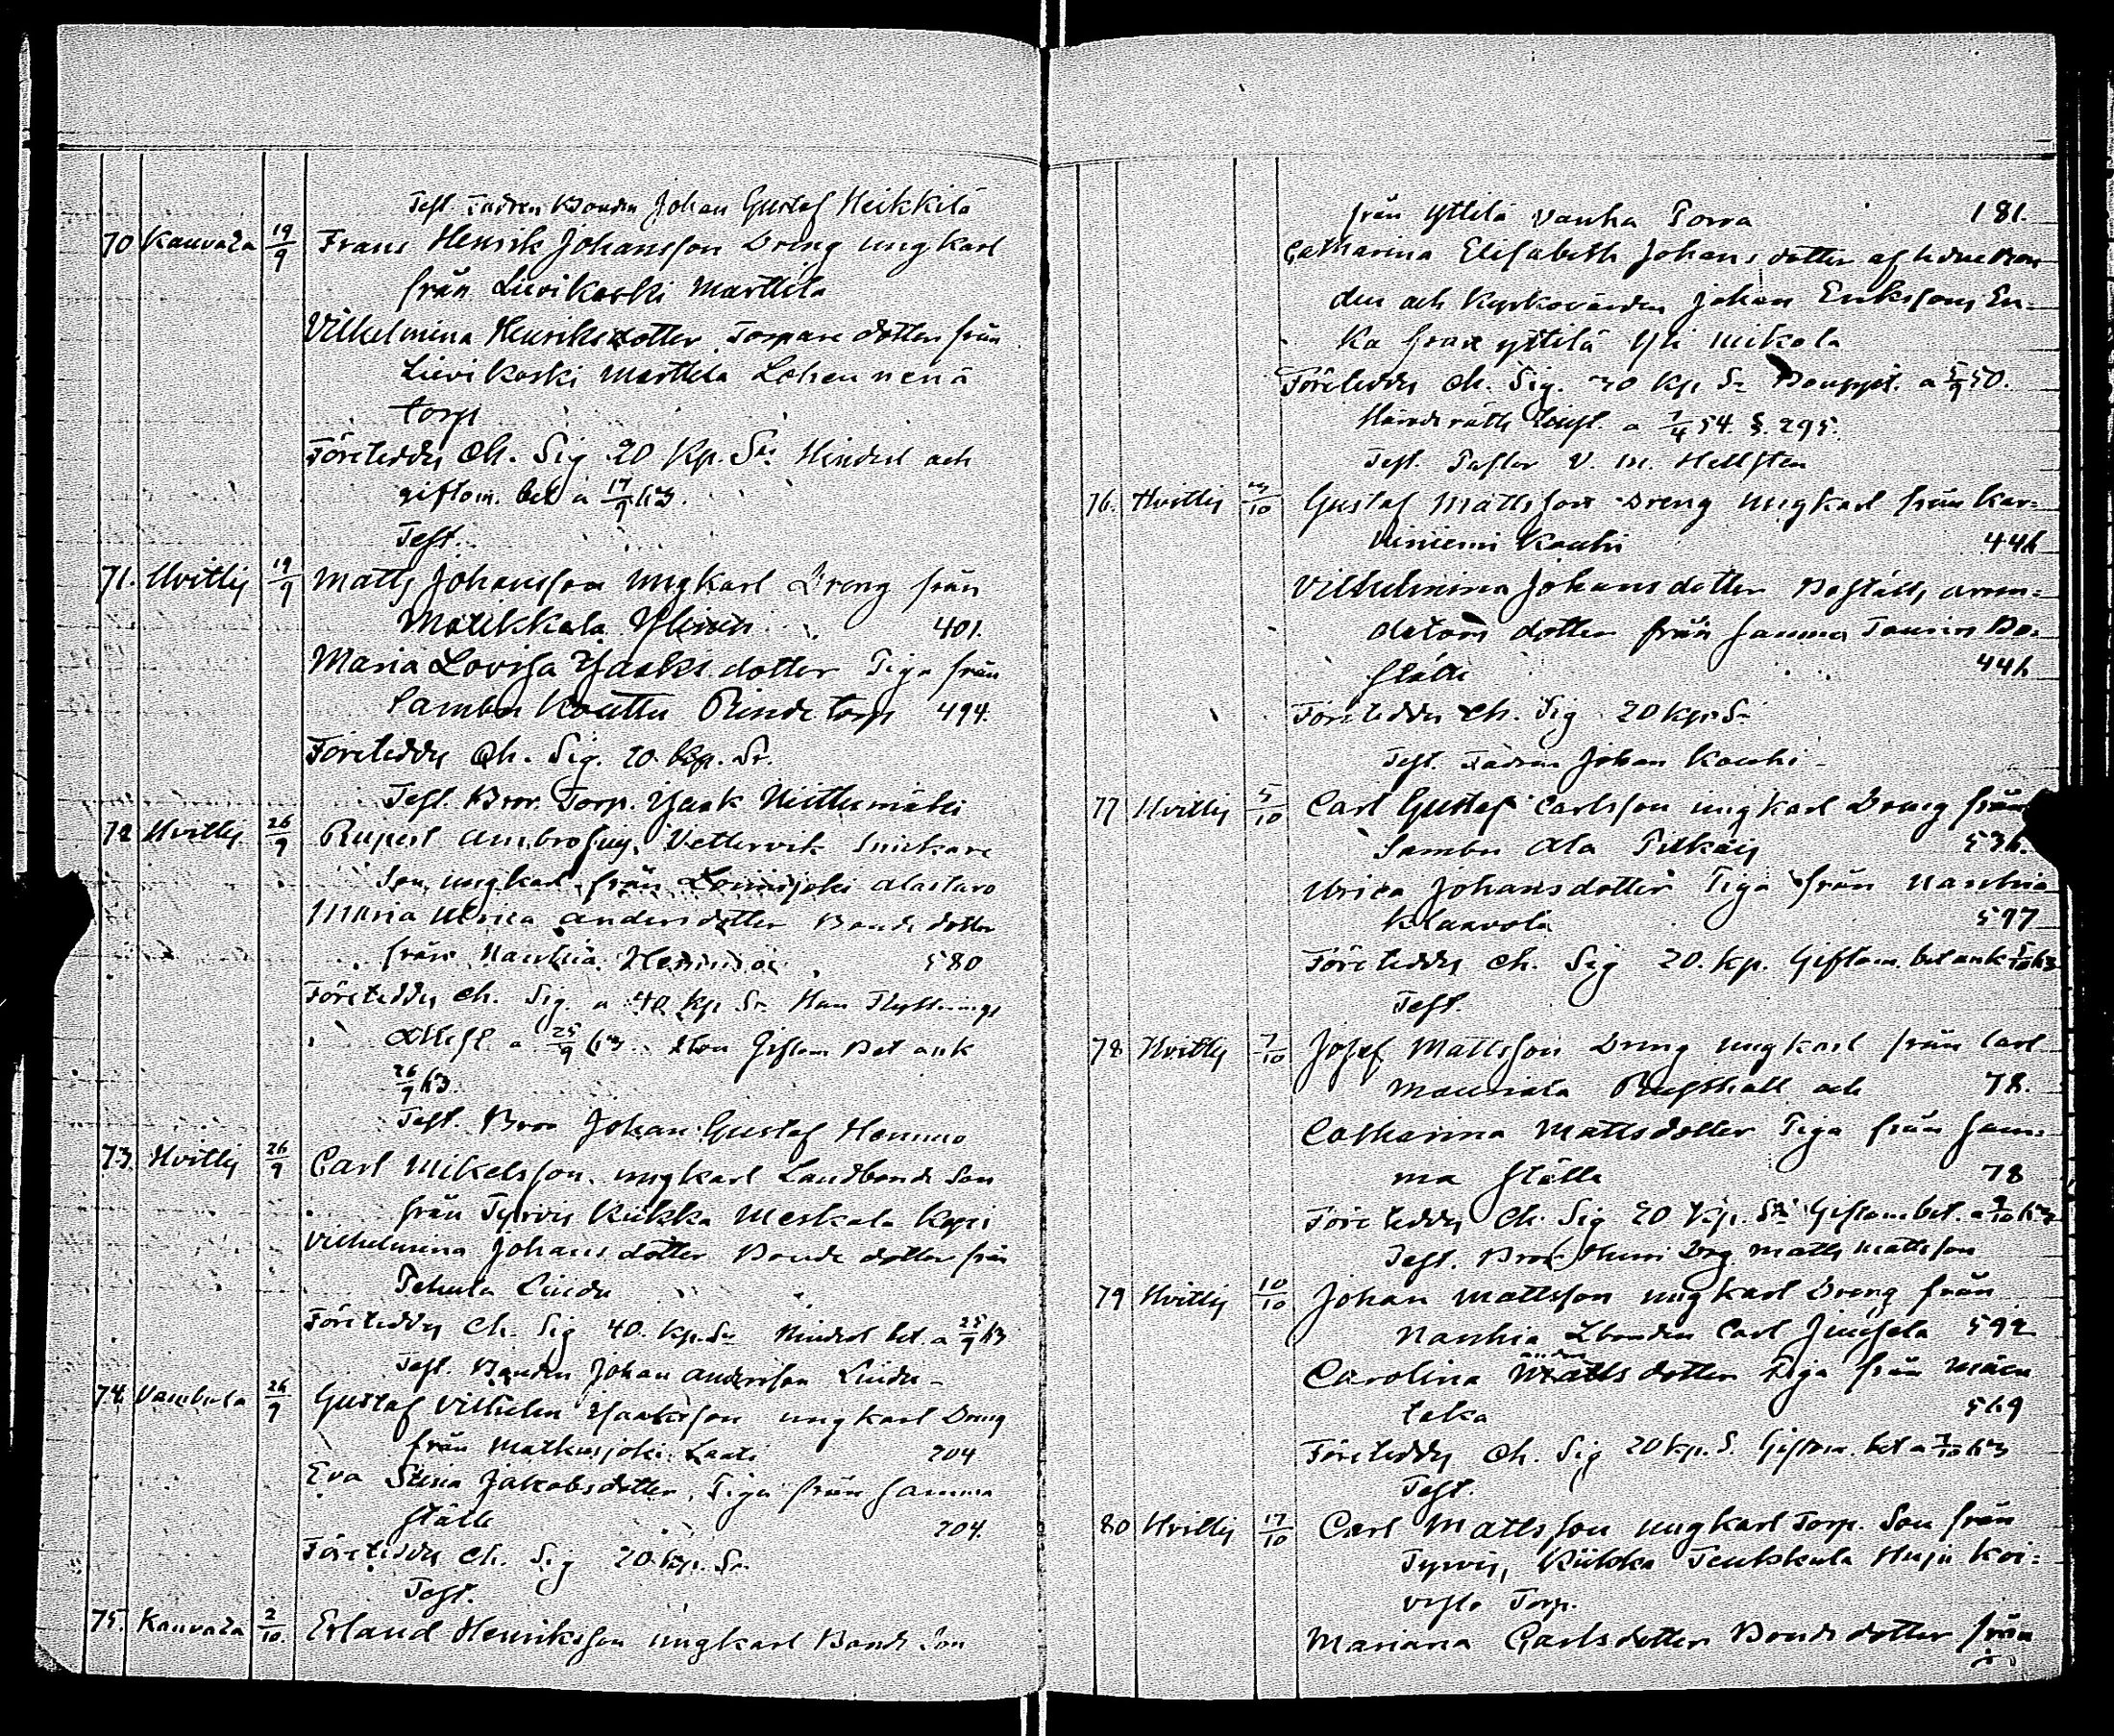 Test. Fadren Bonden Johan Gustaf Heikkilä
70 Kauvaza 19/9 Frans Henrik Johansson Dreng ungkarl
från Lievikoski Marttila
Vilhelmina Henriksdotter Torpare dotter från
Lievikoski Marttila Lohennenä
torp
Företeddes Ch. Sig 20 Kp. Sr Hinderl och
giftom. bet a 17/9 63.
Test.
71. Hvittis 19/9 Matts Johansson ungkarl Dreng från
Matikkala Ylinen 401.
Maria Lovisa Isaksdotter Piga från
Sambu Kouttu Rinde torp 494.
Företeddes Ch. Sig. 20. Kp. Sr.
Test. Bror Torp. Isak Niittumäki
72 Hvittis 26/9 Rupert Ambrosius Vettervik Snickare
Son, ungkarl från Loimijoki Alastaro
Maria Ulrica Andersdotter Bonde dotter
från Nanhia 580
Företeddes Ch. Sig. a 40 Kp. Sr. Han Flyttnings
Attest a 25/9 63. Hon Giftom Bet ank
26/9 63.
Test. Bror Johan Gustaf
73. Hvittis 26/9 Carl Mikelsson ungkarl Landbonde Son
från Tyrvis Kiikka Meskala
Vilhelmina Johansdotter Bonde dotter från
Pehula Liudu
Företeddes Ch. Sig 40. Kp. Sr Hinderl bet. a 25/9 63
Test. Bonden Johan Andersson Liudu
74. Vambula 26/9 Gustaf Vilhelm Isaksson ungkarl Dreng
från Matkusjoki Laati 204
Eva Stina Jakobsdotter, Piga från samma
ställe 204.
Företeddes Ch. Sig 20. Kp. Sr.
Test.
75. Kauvaza 2/10. Erland Henriksson ungkarl Bonde Son
från Yttilä Vanha Porra 181.
Catharina Elisabeth Johansdotter aflidne Bon
den och Kyrkovärden Johan Erikssons En-
ka från Yttilä Yli Mikola
Företeddes Ch. Sig. 20 Kp. Sr Bouppt. a 50.
Häradsrätts a 7/4 54. §. 295.
Test. Pastor V. M. Hellsten
76. Hvittis /10 Gustaf Mattsson Dreng ungkarl från Kar-
viniemi Kouhi 446
Vilhelmina Johansdotter Boställs arren-
dators dotter från samma Bo-
ställe 446
Företeddes Ch. Sig 20 Kp. Sr
Test. Fadren Johan Kouhi
77 Hvittis 5/10 Carl Gustaf Carlsson ungkarl Dreng från
Sambu Ala Pitkäis 536.
Ulrica Johansdotter Piga från Nanhia
Klaavola 597
Företeddes Ch. Sig 20. Kp. Giftom. bet ank 5/10 63
Test.
78 Hvittis 7/10 Josef Mattsson Dreng ungkarl från Carl
Mauriala Rusthåll och 78.
Catharina Mattsdotter Piga från sam-
ma ställe 78
Företeddes Ch. Sig 20 Kp. Sr Giftom bet. a /10 63
Test. Bror Drg Matts Mattsson
79 Hvittis 10/10 Johan Mattsson ungkarl Dreng från
Nanhia Lbonden Carl Junesela 592
Carolina Mattsdotter Piga från Mäen
taka 569
Företeddes Ch. Sig 20 kp. S. Giftom. bet a 7/10 63
Test.
80 Hvittis 17/10 Carl Mattsson ungkarl Torp. Son från
Tyrvis, Kiikka Teukkula Huju Koi-
visto Torp.
Mariana Carlsdotter Bonde dotter från